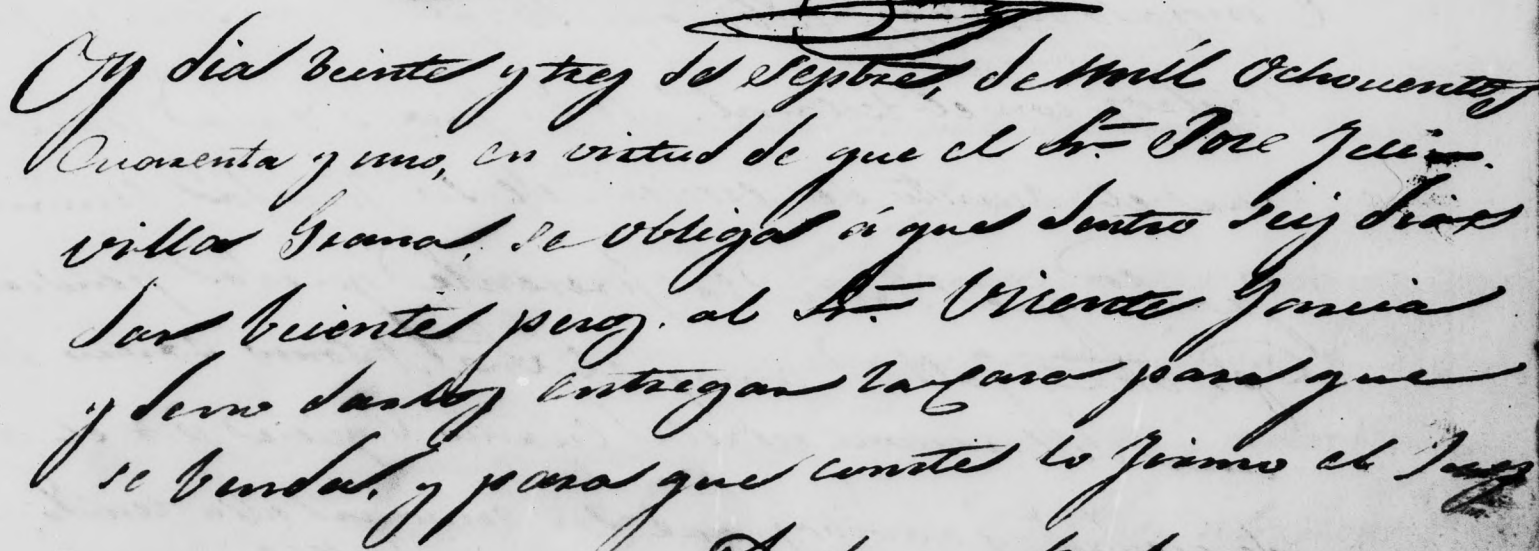 Oy dia beinte y tres de Sepbre, de mil Ochocientos
Cuarenta y uno, en virtud de que el Sr. Jose
villa Grana, se obliga á que dentro seis dias
dar beiente pesos. al Sr. Vicente Garcia
y deno darlos entregar la Casa para que
se benda, y para que conste lo firmo el Juez